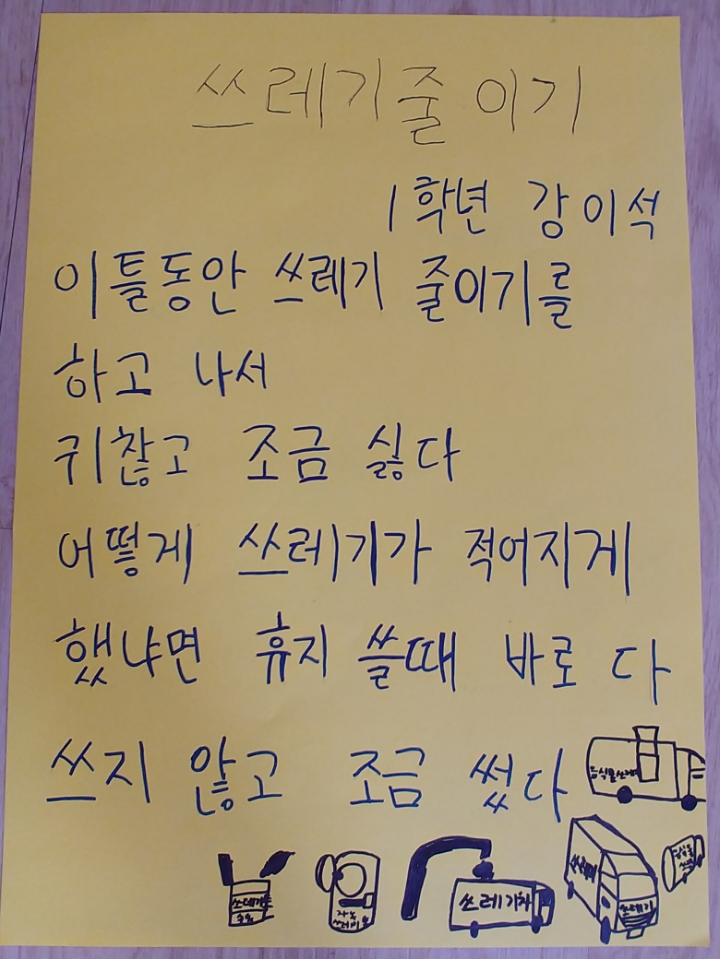 쓰레기줄이기
1학년 강이석
이틀동안 쓰레기 줄이기를
하고 나서
귀찮고 조금 싫다
어떻게 쓰레기가 적어지게
했냐면 휴지 쓸때 바로 다
쓰지 않고 조금 썼다
음식물쓰레
쓰레기차
쓰레기
쓰레기